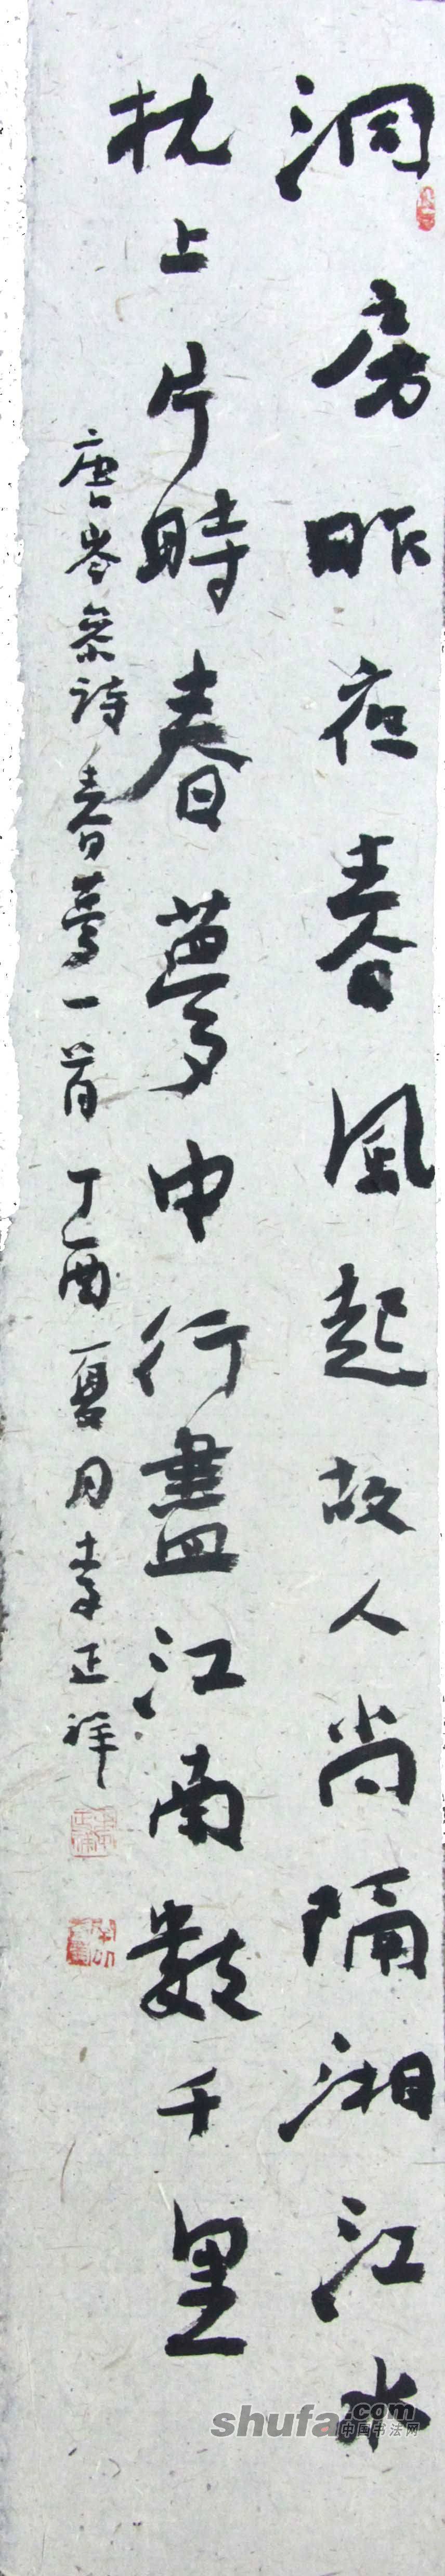 洞房昨夜春風起故人尚隔湘江水
枕上片時春夢中行盡江南數千里
唐岑參詩春夢一首丁酉夏月李正祥
shufa.com
中国书法网